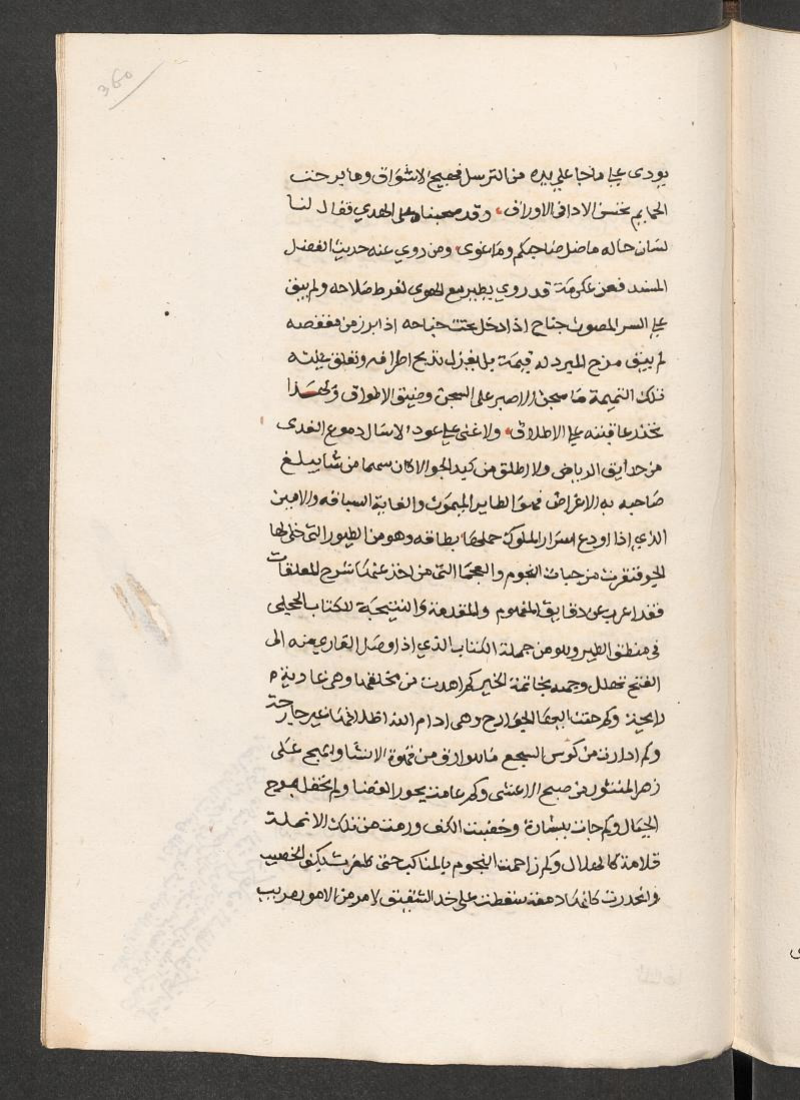 360
يودى على ما جا على يده من الترسل فهيج الاشواق وما برحت
الحمايم بحسن الادا فى الاوراق وقد صحبنا على الهدي فقال لنا
لسان حاله ما ضل صاحبكم وما غوى ومن روي عنه حديث الفضل
المسند فعن عكرمة قد روي يطير مع الهوى لفرط صلاحه ولم يبق
على السر المصون جناح اذا دخل تحت جناحه اذا برز من مقفصه
لم يبق من صرح له قيمة بل ينعزل بذبح اطرافه وتعلق عليه
تلك التميمة ما سجن الا صبر على السجن وضيق الاطواق ولهذا
تحمد عاقبته على الاطلاق ولا غنى على عود الا سال دموع الندى
من حدايق الرياض ولا اطلق من كبد الجو الا كان سهما من شا يبلغ
صاحبه به الاغراض فهو الطاير الميمون والغاية السباقه والامين
الذي اذا اودع اسرار الملوك حملها بطاقه وهو من الطيور التى خلى لها
الجو فنقرت من حبات النجوم والعجما التى من اخذ عنها شرح المعلقات
فقد اعرب عن دقايق المفهوم والمقدمة والنتيجة للكتاب الحجلى
فى منطق الطير وهو من جملة الكتاب الذي اذا وصل القارى منه الى
الفتح تهلل وجهه بخاتمة الخير كم اهدت من مخلقها وهى غادية
رايحة وكم حنت اليها الجوارح وهى ادام الله اظلالها غير جارحة
وكم ادارت من كوس السجع ما هو ارق من قهوة الانشا وابهج على
زهر المنثور من صبح الاعشى وكم عامت بحور الفضا ولم تحفل بموج
الجبال وكم جات ببشارة وخضبت الكف ورمت من تلك الانملة
قلامة كالهلال وكم زاحمت النجوم بالمناكب حتى ظفرت بكف الخضيب
وانحدرت كانها دمعة سقطت على خد الشفيق لامر من الامور مريب